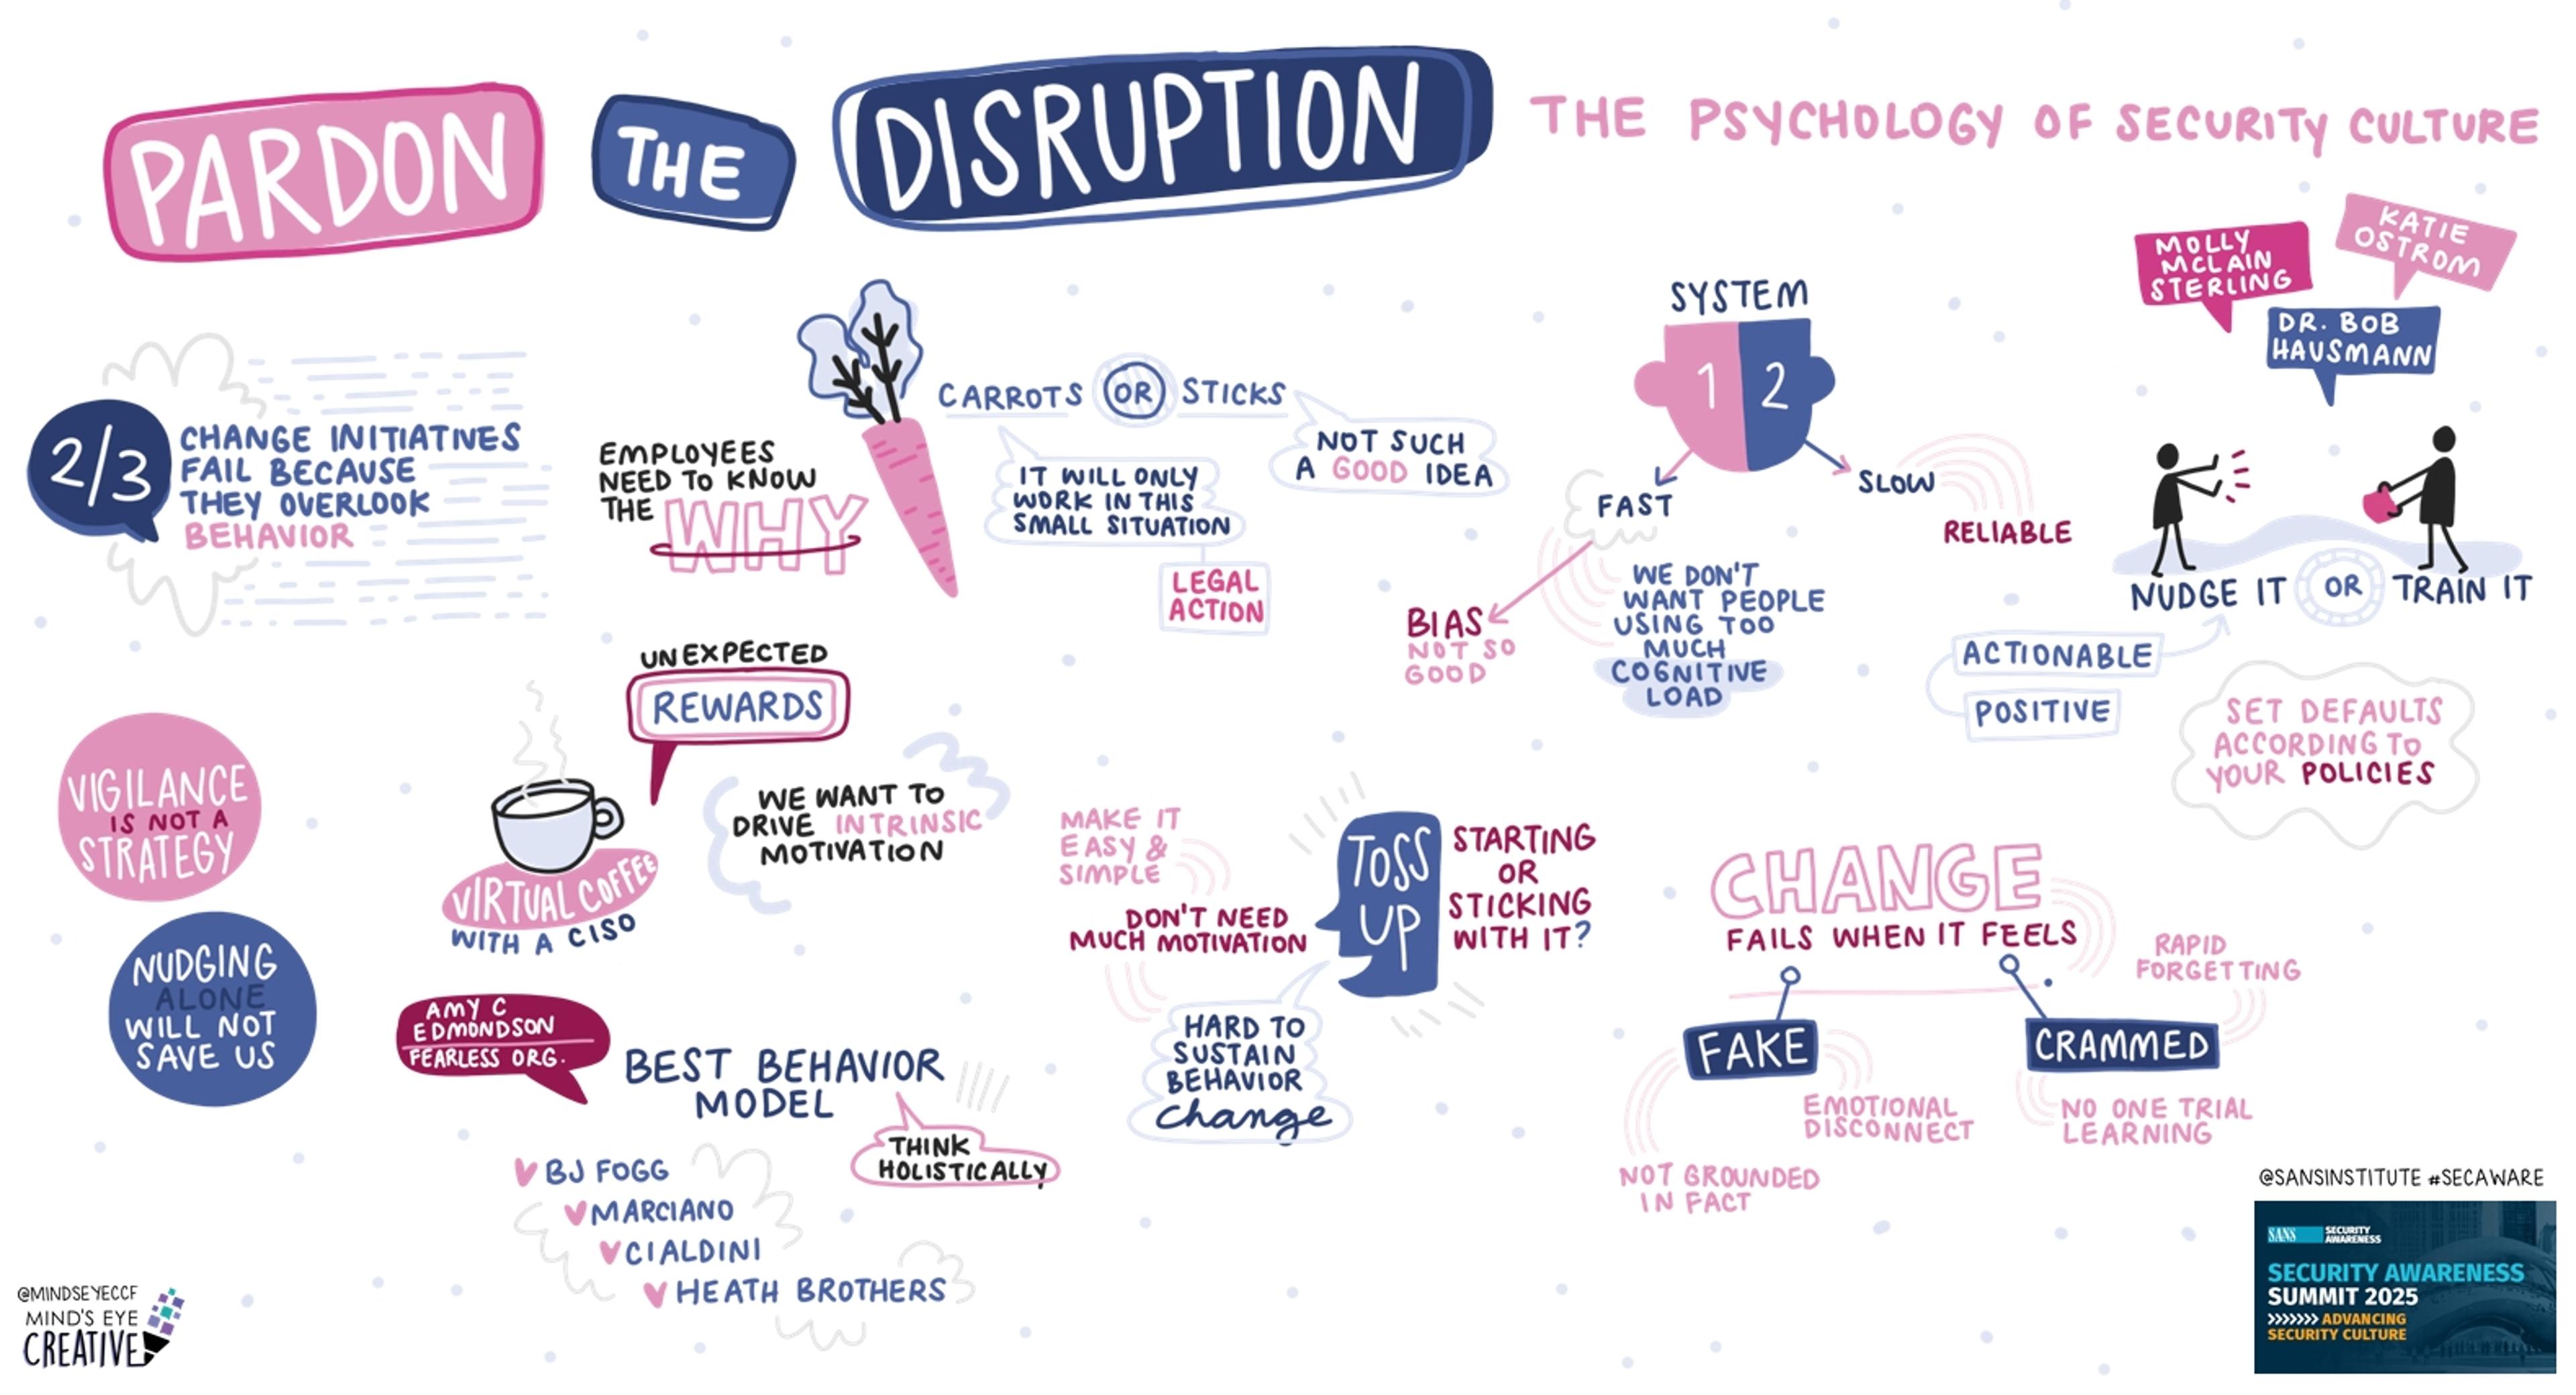 PARDON
THE
DISRUPTION
THE PSYCHOLOGY OF SECURITY CULTURE
MOLLY
MCLAIN
STERLING
KATIE
OSTROM
DR. BOB
HAUSMANN
2/3
CHANGE INITIATIVES
FAIL BECAUSE
THEY OVERLOOK
BEHAVIOR
EMPLOYEES
NEED TO KNOW
THE WHY
CARROTS OR STICKS
IT WILL ONLY
WORK IN THIS
SMALL SITUATION
LEGAL
ACTION
NOT SUCH
A GOOD IDEA
SYSTEM
1 2
FAST
SLOW
RELIABLE
BIAS
NOT SO
GOOD
WE DON'T
WANT PEOPLE
USING TOO
MUCH
COGNITIVE
LOAD
NUDGE IT OR TRAIN IT
ACTIONABLE
POSITIVE
SET DEFAULTS
ACCORDING TO
YOUR POLICIES
VIGILANCE
IS NOT A
STRATEGY
NUDGING
ALONE
WILL NOT
SAVE US
UNEXPECTED
REWARDS
VIRTUAL COFFEE
WITH A CISO
WE WANT TO
DRIVE INTRINSIC
MOTIVATION
AMY C
EDMONDSON
FEARLESS ORG.
BEST BEHAVIOR
MODEL
THINK
HOLISTICALLY
BJ FOGG
MARCIANO
CIALDINI
HEATH BROTHERS
MAKE IT
EASY &
SIMPLE
DON'T NEED
MUCH MOTIVATION
TOSS
UP
STARTING
OR
STICKING
WITH IT?
HARD TO
SUSTAIN
BEHAVIOR
change
CHANGE
FAILS WHEN IT FEELS
FAKE
EMOTIONAL
DISCONNECT
NOT GROUNDED
IN FACT
CRAMMED
RAPID
FORGETTING
NO ONE TRIAL
LEARNING
@SANSINSTITUTE #SECAWARE
SANS
SECURITY
AWARENESS
SECURITY AWARENESS
SUMMIT 2025
>>>>>>> ADVANCING
SECURITY CULTURE
@MINDSEYECCF
MIND'S EYE
CREATIVE